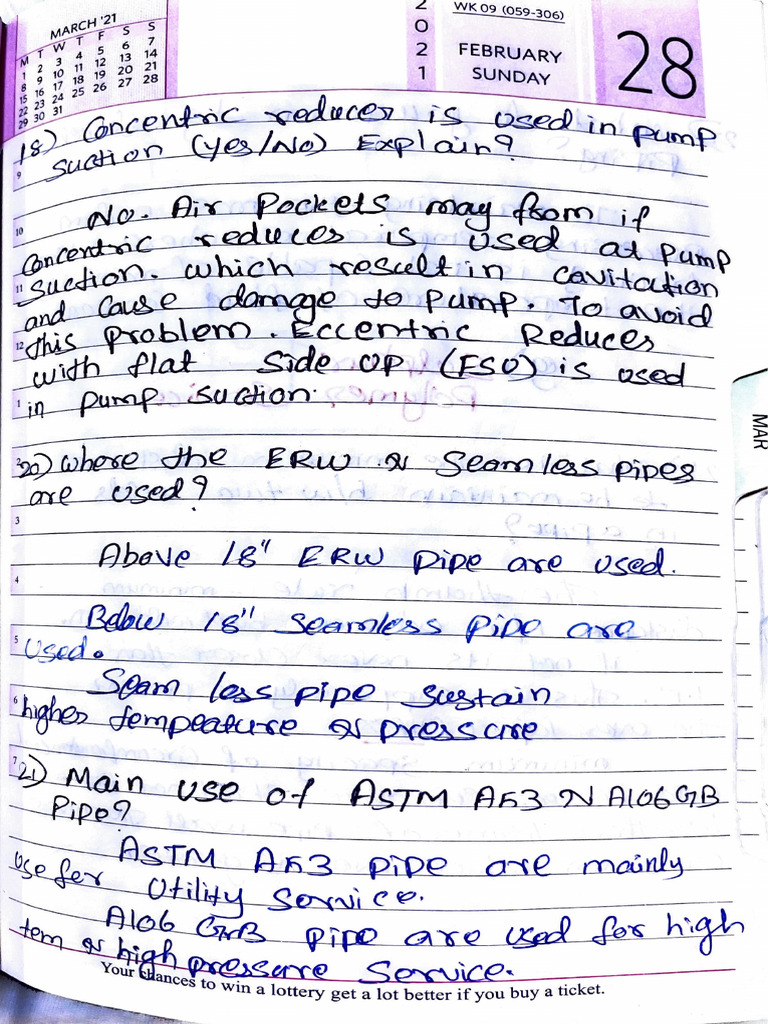 MARCH '21
M T W T F S S
1 2 3 4 5 6 7
8 9 10 11 12 13 14
15 16 17 18 19 20 21
22 23 24 25 26 27 28
29 30 31
2021
WK 09 (059-306)
FEBRUARY
SUNDAY
28
18) Concentric reducer is used in pump
suction (Yes/No) Explain?
No. Air Pockets may from if
Concentric reduces is used at pump
suction. which result in cavitation
and cause damage to pump. To avoid
this problem. Eccentric Reduces
with flat side up (FSU) is used
in pump suction.
20) where the ERW & Seamless pipes
are used?
Above 18" ERW pipe are used.
Below 18" seamless pipe are
used.
Seam less pipe sustain
higher tempeature & pressure
21) Main use of ASTM A53 & A106 GB
Pipe?
ASTM A53 pipe are mainly
use for Utility Service.
A106 GrB pipe are used for high
tem & high pressure Service.
Your chances to win a lottery get a lot better if you buy a ticket.
MAR
9
10
11
12
1
2
3
4
5
6
7